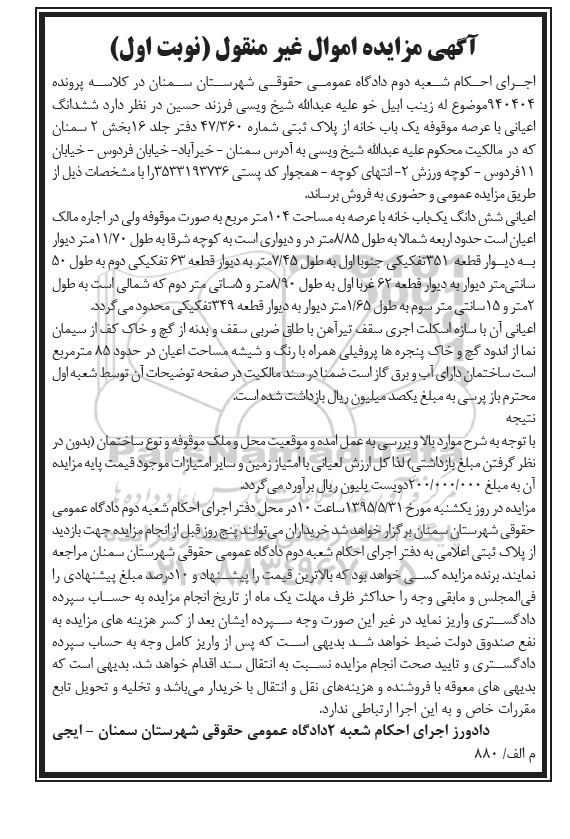 آگهی مزایده اموال غیر منقول (نوبت اول)
اجرای احکام شعبه دوم دادگاه عمومی حقوقی شهرستان سمنان در کلاسه پرونده
۹۴۰۴۰۴موضوع له زینب ابیل خو علیه عبدالله شیخ ویسی فرزند حسین در نظر دارد ششدانگ
اعیانی با عرصه موقوفه یک باب خانه از پلاک ثبتی شماره ۴۷/۳۶۰ دفتر جلد ۱۶بخش ۲ سمنان
که در مالکیت محکوم علیه عبدالله شیخ ویسی به آدرس سمنان - خیرآباد- خیابان فردوس - خیابان
۱۱فردوس - کوچه ورزش ۲-انتهای کوچه - همجوار کد پستی ۳۵۳۳۱۹۳۷۳۶را با مشخصات ذیل از
طریق مزایده عمومی و حضوری به فروش برساند.
اعیانی شش دانگ یک‌باب خانه با عرصه به مساحت ۱۰۴متر مربع به صورت موقوفه ولی در اجاره مالک
اعیان است حدود اربعه شمالا به طول ۸/۸۵متر در و دیواری است به کوچه شرقا به طول ۱۱/۷۰متر دیوار
به دیوار قطعه ۳۵۱تفکیکی جنوبا اول به طول ۷/۴۵متر به دیوار قطعه ۶۳ تفکیکی دوم به طول ۵۰
سانتی‌متر دیوار به دیوار قطعه ۶۲ غربا اول به طول ۸/۹۰متر و ۵ساتی متر دوم که شمالی است به طول
۲متر و ۱۵سانتی متر سوم به طول ۱/۶۵متر دیوار به دیوار قطعه ۳۴۹تفکیکی محدود می‌گردد.
اعیانی آن با سازه اسکلت اجری سقف تیرآهن با طاق ضربی سقف و بدنه از گچ و خاک کف از سیمان
نما از اندود گچ و خاک پنجره ها پروفیلی همراه با رنگ و شیشه مساحت اعیان در حدود ۸۵ مترمربع
است ساختمان دارای آب و برق گاز است ضمنا در سند مالکیت در صفحه توضیحات آن توسط شعبه اول
محترم باز پرسی به مبلغ یکصد میلیون ریال بازداشت شده است.
نتیجه
با توجه به شرح موارد بالا و بررسی به عمل امده و موقعیت محل و ملک موقوفه و نوع ساختمان (بدون در
نظر گرفتن مبلغ بازداشتی) لذا کل ارزش لعیانی با امتیاز زمین و سایر امتیازات موجود قیمت پایه مزایده
آن به مبلغ ۲۰۰/۰۰۰/۰۰۰دویست یلیون ریال برآورد می‌گردد.
مزایده در روز یکشنبه مورخ ۱۳۹۵/۵/۳۱ساعت ۱۰در محل دفتر اجرای احکام شعبه دوم دادگاه عمومی
حقوقی شهرستان سمنان برگزار خواهد شد خریداران می‌توانند پنج روز قبل از انجام مزایده جهت بازدید
از پلاک ثبتی اعلامی به دفتر اجرای احکام شعبه دوم دادگاه عمومی حقوقی شهرستان سمنان مراجعه
نمایند. برنده مزایده کسی خواهد بود که بالاترین قیمت را پیشنهاد و ۱۰درصد مبلغ پیشنهادی را
فی‌المجلس و مابقی وجه را حداکثر ظرف مهلت یک ماه از تاریخ انجام مزایده به حساب سپرده
دادگستری واریز نماید در غیر این صورت وجه سپرده ایشان بعد از کسر هزینه های مزایده به
نفع صندوق دولت ضبط خواهد شد بدیهی است که پس از واریز کامل وجه به حساب سپرده
دادگستری و تایید صحت انجام مزایده نسبت به انتقال سند اقدام خواهد شد. بدیهی است که
بدیهی های معوقه با فروشنده و هزینه‌های نقل و انتقال با خریدار می‌باشد و تخلیه و تحویل تابع
مقررات خاص و به این اجرا ارتباطی ندارد.
دادورز اجرای احکام شعبه ۲دادگاه عمومی حقوقی شهرستان سمنان - ایجی
م الف/ ۸۸۰